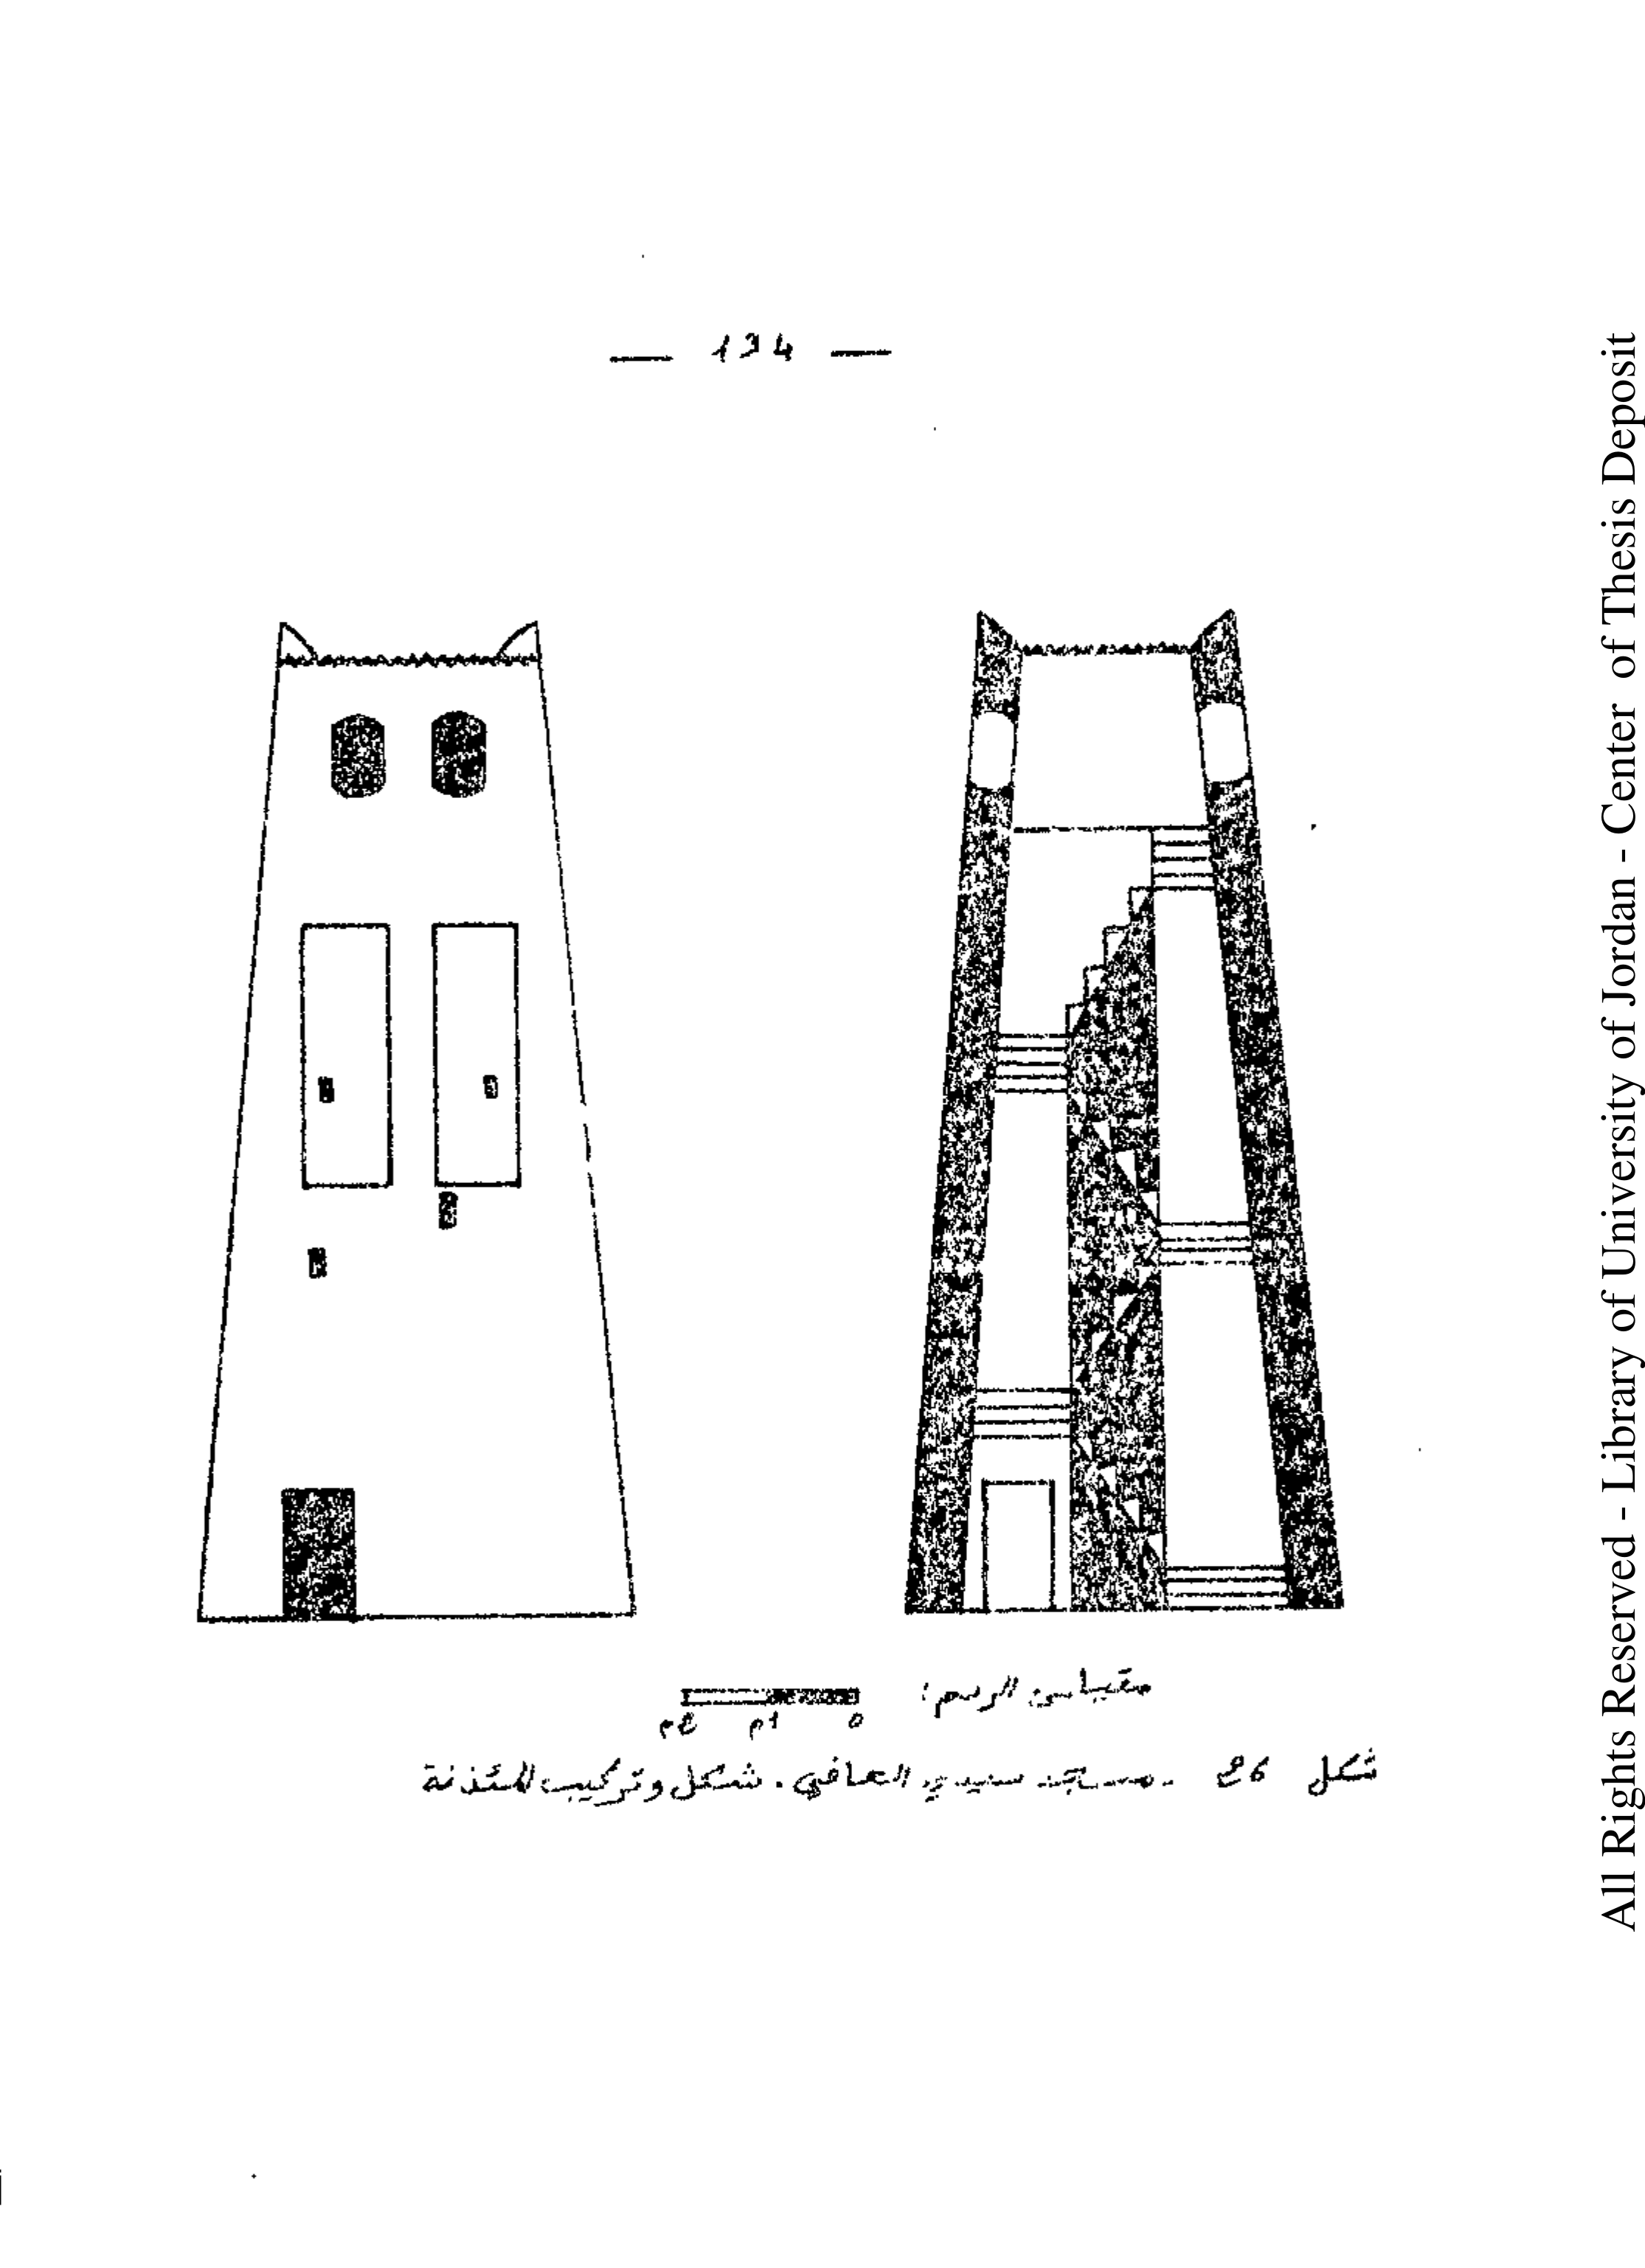 — 134 —
مقياس الرسم:
0 1م 2م
شكل 26 - مسجد سيدي العافي. شكل وتركيب المئذنة
All Rights Reserved - Library of University of Jordan - Center of Thesis Deposit